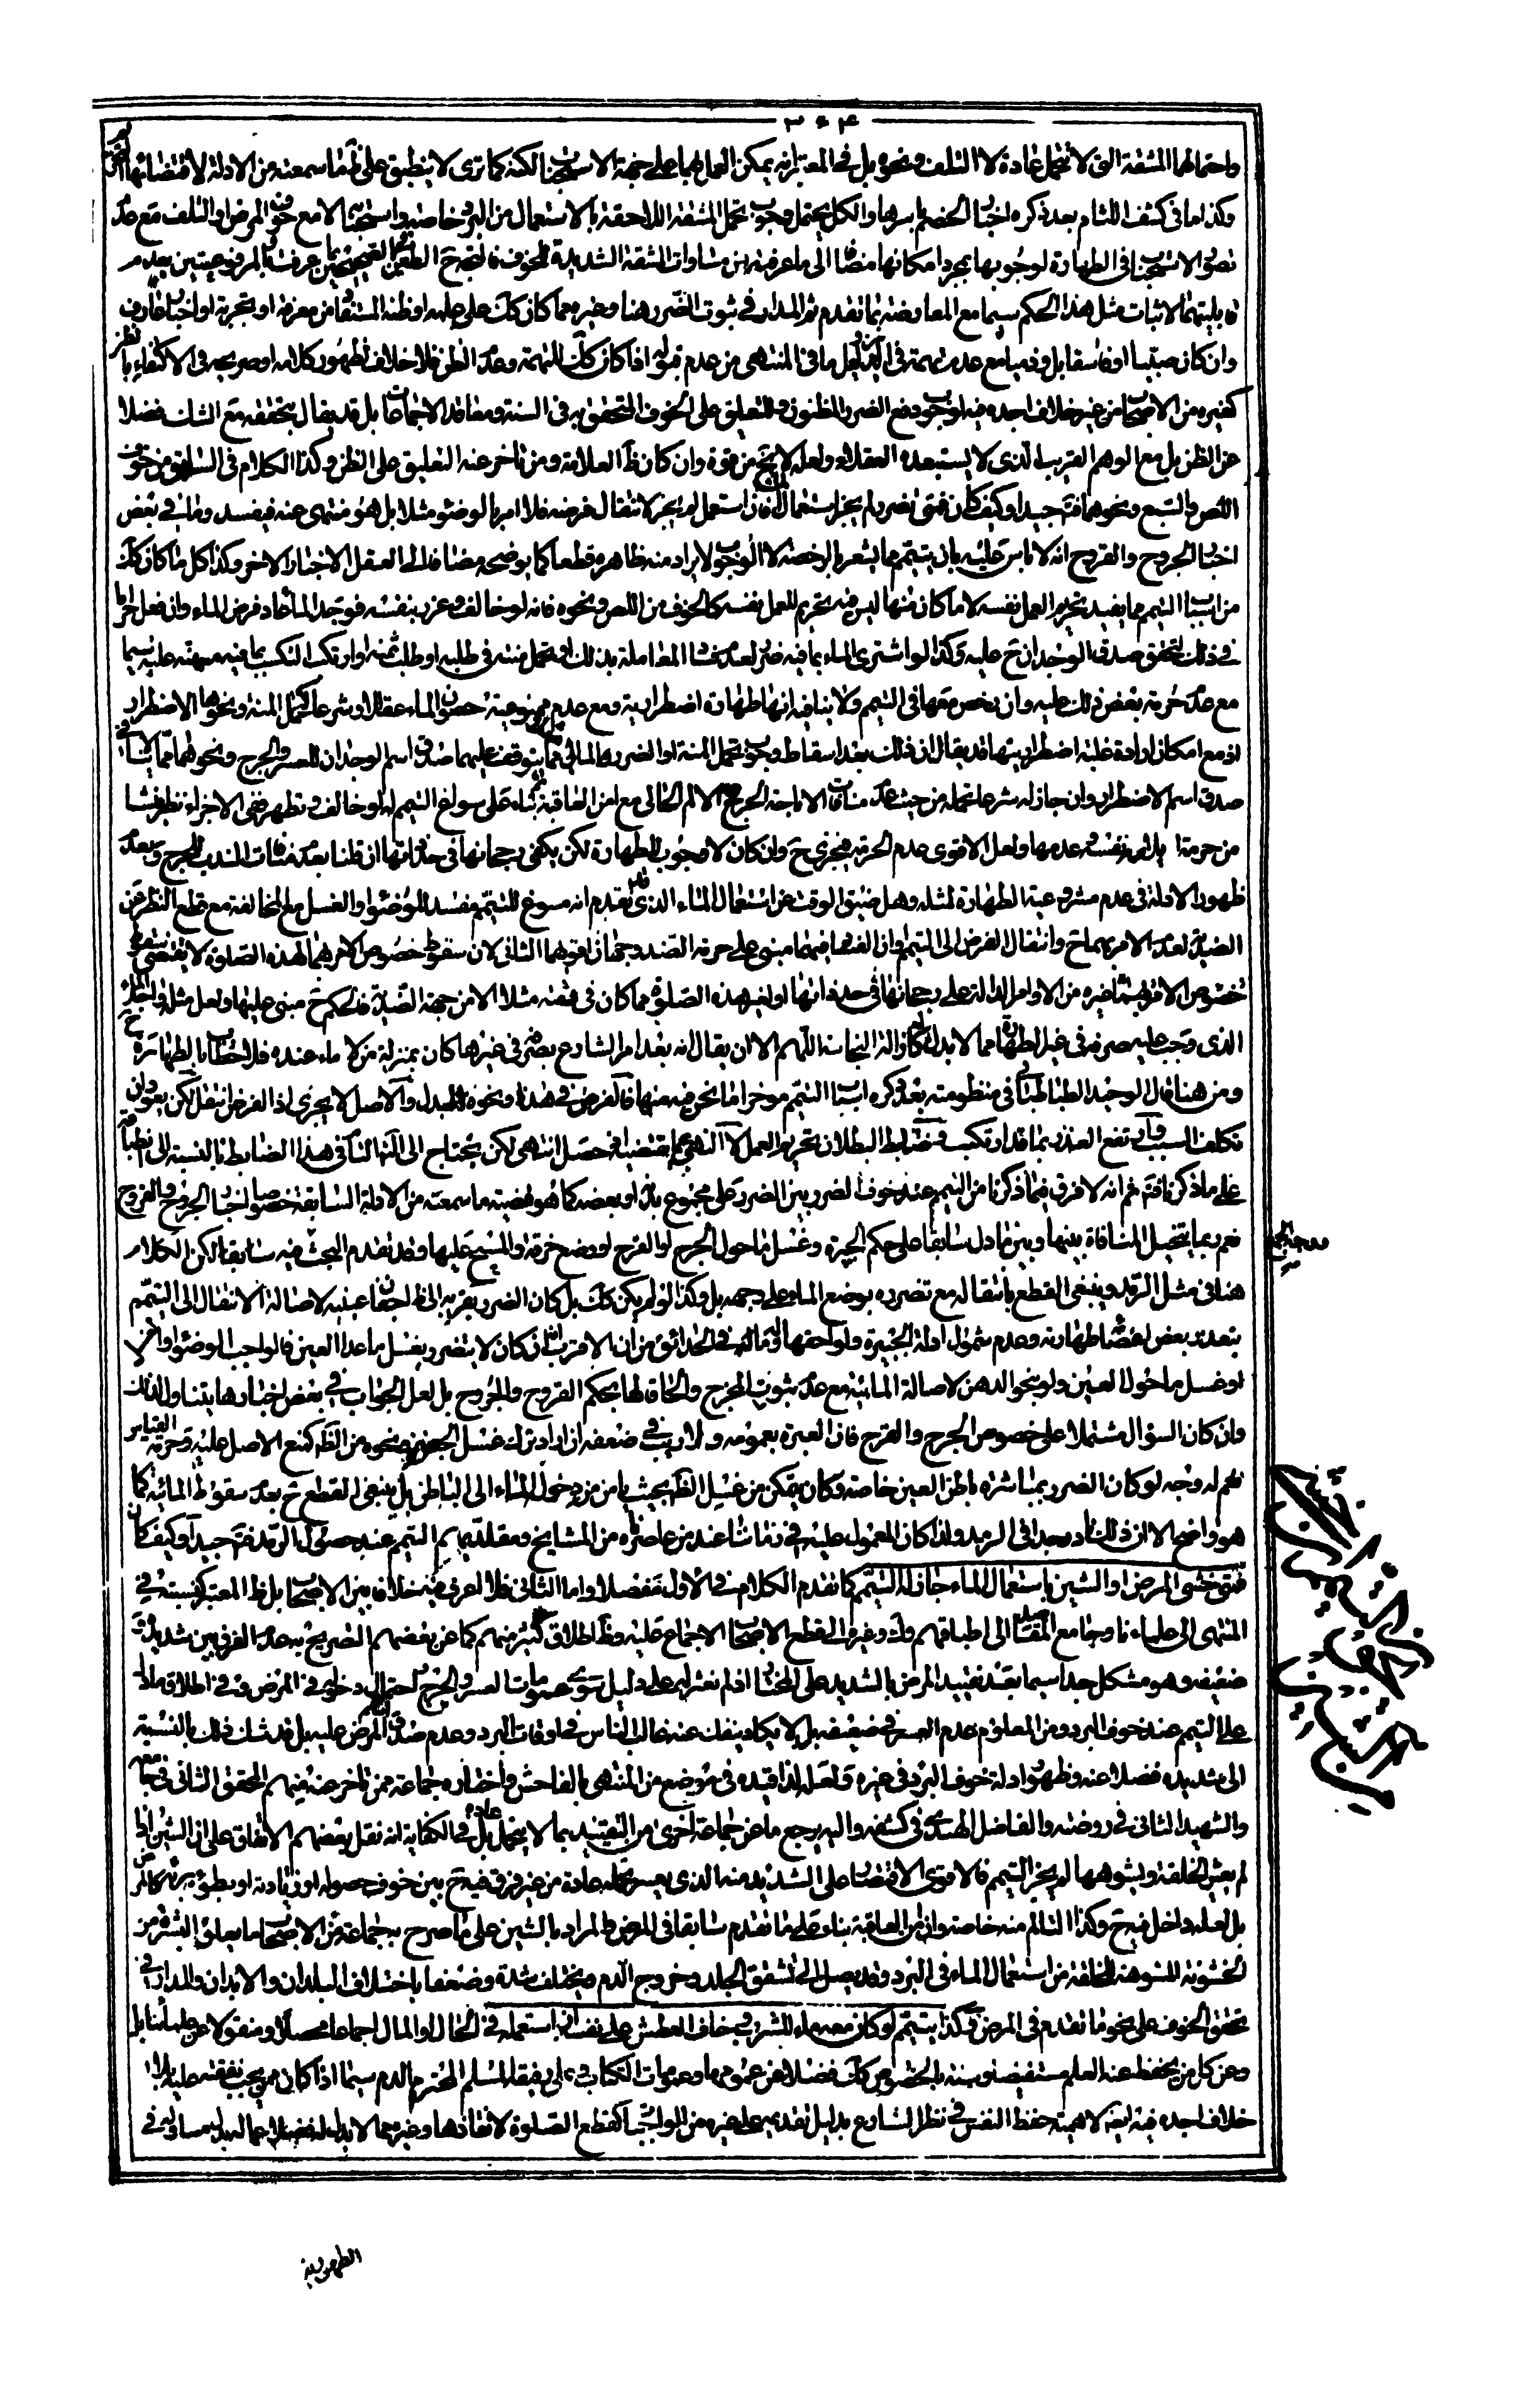 ٣٠٤
واحتمالهما المشقة التي لا تتحمل عادة لا التلف ونحوه بل في المعتبر انه يمكن العمل بهما على جهة الاستحباب لكنه كما ترى لا ينطبق على تمام ما سمعته من الادلة لاقتضائها
وكذا ما في كشف اللثام بعد ذكره اخبار الخصم باسرها والكل يحتمل وجوب تحمل المشقة اللاحقة بالاستعمال من البرد خاصة واستحبابه لا مع خوف المرض او التلف مع عدم
تصور الاستحباب في الطهارة لوجوبها بمجرد امكانها مضافا الى ما عرفته من مساوات المشقة الشديدة للخوف
قابليتهما لاثبات مثل هذا الحكم سيما مع المعارضة بما تقدم ثم المدار في ثبوت الضرر هنا وغيره مما كان كك على علمه او ظنه المستفاد من معرفة او تجربة او اخبار عارف
وان كان صبيا او فاسقا بل وذميا مع عدم تهمته في الدين ولعل ما في المنتهى من عدم قبوله اذا كان كك للتهمة وعدم الظن فلا خلاف لظهور كلامه او صريحه في الاكتفاء بالظن
كغيره من الاصحاب من غير خلاف اجده فيه لوجوب دفع الضرر المظنون وللتعليق على الخوف المتحقق به في السنة ومعاقد الاجماعات بل قد يقال بتحققه مع الشك فضلا
عن الظن بل مع الوهم القريب الذي لا يستبعده العقلاء ولعله لا يخ من قوة وان كان ظ العلامة ومن تاخر عنه التعليق على الظن وكذا الكلام في السابق من خوف
اللص والسبع ونحوهما فت جيدا وكيف كان فمتى تضرر لم يجز استعمال الماء فان استعمل لم يجز لانتقال فرضه فلا امر بالوضوء مثلا بل هو منهي عنه فيفسد وما في بعض
اخبار الجروح والقروح انه لا باس عليه بان يتيمم مما يشعر بالرخصة لا الوجوب لا يراد منه ظاهره قطعا كما يوضحه مضافا الى العقل الاخبار الاخر وكذا كل ما كان كك
من اسباب التيمم مما يفيد تحريم العمل نفسه لا ما كان منها ليس فيه تحريم للعمل نفسه كالخوف من اللص ونحوه فانه لو خالف وغرر بنفسه فوجد الماء عاد فرض الماء وان فعل حراما
في ذلك لتحقق صدق الوجدان ح عليه وكذا لو اشترى الماء بما فيه ضرر لعدم فساد المعاملة بذلك او تحمل منة في طلبه او طلب ثمنه او ارتكب التكسب بما فيه مهنة عليه سيما
مع عدم حرمة بعض ذلك عليه وان رخص معها في التيمم ولا ينافيه انها طهارة اضطرارية ومع عدم ممنوعية حصول الماء عقلا او شرعا كتحمل المنة ونحوها لا اضطرار
اذ مع امكان ارادة غلبة اضطراريتها قد يقال ان ذلك بعد اسقاط وجوب تحمل المنة او الضرر المالي مما يتوقف عليهما صدق اسم الوجدان للعسر والحرج ونحوهما مما لا ينافي
صدق اسم الاضطرار وان جاز له شرعا تحمله من حيث عدم منافاة الاباحة الحرج الالم الحالي مع امن العاقبة بناء على سواغ التيمم له لو خالف وتطهر ففي الاجزاء نظر ينشا
من حرمة ايلام نفسه وعدمها ولعل الاقوى عدم الحرمة فيجزي ح وان كان لا وجوب للطهارة لكن يكفي رجحانها في حد ذاتها ان قلنا بعدم منافات الندب للحرج وبعدم
ظهور الادلة في عدم مشروعية الطهارة لمثله وهل ضيق الوقت عن استعمال الماء الذي تقدم انه مسوغ للتيمم مفسد للوضوء او الغسل مع المخالفة مع قطع النظر عن
الضدية لعدم الامر بهما ح وانتقال الفرض الى التيمم او ان الفساد فيهما مبني على حرمة الضد وجهان اقويهما الثاني لان سقوط خصوص الامر بهما لهذه الصلوة لا يقتضي سقوط
خصوص الامر بهما من غيره من الاوامر الدالة على رجحانها في حد ذاتها او لغير هذه الصلوة مما كان في ذمته مثلا الا من جهة الضدية فالحكم ح مبني عليها ولعل مثله الماء
الذي وجب عليه صرفه في غير الطهارة مما لا بدل له كازالة النجاسة اللهم الا ان يقال انه بعد امر الشارع بصرفه في غيرها كان بمنزلة من لا ماء عنده فلا خطاب بالطهارة ح
ومن هنا قال الوحيد الطباطبائي في منظومته بعد ذكره اسباب التيمم موخرا ما نحن فيه منها فالفرض في هذا ونحوه البدل والاصل لا يجزي اذ الفرض انتقل لكن يعود ان
تكلف السبب فارتفع العذر بما قد ارتكب فضابط البطلان تحريم العمل لا النهي عما يقتضيه ان حصل انتهى لكن يحتاج الى التامل في هذا الضابط بالنسبة الى انطباقه
على ما ذكرنا فت ثم انه لا فرق فيما ذكرنا من التيمم عند خوف الضرر بين الضرر على مجموع بدنه او بعضه كما هو قضية ما سمعته من الادلة السابقة خصوصا اخبار الجروح والقروح
نعم ربما يتخيل المنافاة بينها وبين ما دل سابقا على حكم الجبيرة وغسل ما حول الجرح او القرح او وضع خرقة والمسح عليها وقد تقدم البحث فيه سابقا لكن الكلام
هنا في مثل الرمد وينبغي القطع بانتقاله مع تضرره بوضع الماء على وجهه بل وكذا لو لم يكن كك بل كان الضرر بقربه الى ظ اجفان عينيه لاصالة الانتقال الى التيمم
بتعذر بعض اعضاء طهارته وعدم شمول ادلة الجبيرة ولواحقها له فما في الحدائق من ان الاقرب انه ان كان لا يتضرر بغسل ما عدا العين فالواجب الوضوء او الغسل
او غسل ما حول العين ولو بنحو الدهن لاصالة المائية مع عدم ثبوت المخرج والحاقا لها بحكم القروح والجروح بل لعل الجواب في بعض اخبارها يتناول ذلك
وان كان السؤال مشتملا على خصوص الجرح والقرح فان العبرة بعمومه ولا ريب في ضعفه ان اراد ترك غسل الجفنين ونحوه من الظ كمنع الاصل عليه وحرمة القياس
نعم له وجه لو كان الضرر بمباشرة باطن العين خاصة وكان يتمكن من غسل الظ بحيث يامن من دخول الماء الى الباطن بل ينبغي القطع ح بعدم سقوط المائية كما
هو واضح الا ان ذلك نادر جدا في الرمد ولذا كان المعمول عليه في زماننا عند من عاصرناه من المشايخ ومقلديهم التيمم عند حصول الرمد فت جيدا وكيف كان
فمتى خشي المرض او الشين باستعمال الماء جاز له التيمم كما تقدم الكلام في الاول مفصلا واما الثاني فلا اعرف فيه خلافا بين الاصحاب بل ظ المعتبر كنسبته في
المنتهى الى علمائنا وجامع المقاصد الى اطباقهم وك وغيره الى قطع الاصحاب الاجماع عليه وظ اطلاق كثير منهم كما عن بعضهم التصريح به عدم الفرق بين شديده
وضعيفه وهو مشكل جدا سيما بعد تقييد المرض بالشديد على المختار اذ لم نعثر له على دليل سوى عمومات العسر والحرج واحتمال دخوله في المرض او في اطلاق ما دل
على التيمم عند خوف البرد ومن المعلوم عدم العسر في ضعيفه بل لا يكاد ينفك عنه غالب الناس في اوقات البرد وعدم صدق اسم المرض عليه بل قد شك في ذلك بالنسبة
الى شديده فضلا عنه وظهور ادلة خوف البرد في غيره ولعله لذا قيده في موضع من المنتهى بالفاحش واختاره جماعة ممن تاخر عنه منهم المحقق الثاني في جامعه
والشهيد الثاني في روضته والفاضل الهندي في كشفه واليه يرجع ما عن جماعة اخرى من التقييد بما لا يتحمل عادة بل في الكفاية انه نقل بعضهم الاتفاق على ان الشين اذا
لم يغير الخلقة ويشوهها لم يجز التيمم فالاقوى الاقتصار على الشديد منه الذي يعسر تحمله عادة من غير فرق فيه ح بين خوف حصوله او زيادته او بطؤ برئه كالمرض
بل لعله داخل فيه ح وكذا التالم منه خاصة وان امن العاقبة بناء على ما تقدم سابقا في المرض والمراد بالشين على ما صرح به جماعة من الاصحاب ما يعلو البشرة من
الخشونة المشوهة للخلقة من استعمال الماء في البرد وقد يصل الى تشقق الجلد وخروج الدم ويختلف شدة وضعفا باختلاف البلدان والابدان والمدار في
تحقق الخوف على نحو ما تقدم في المرض وكذا يتيمم لو كان معه ماء للشرب وخاف العطش على نفسه ان استعمله في الحال او المال اجماعا محصلا ومنقولا عن علمائنا بل
وعن كل من يحفظ عنه العلم مستفيضا وسنة بالخصوص كك فضلا عن عمومها وعمومات الكتاب او على رفيقه المسلم المحترم الدم سيما اذا كان ممن يجب نفقته عليه بلا
خلاف اجده فيه ايضا لاهمية حفظ النفس في نظر الشارع بدليل تقديمه على غيره من الواجبات كقطع الصلوة لانقاذها وغيره مما لا بدل له فضلا عما له بدل مساو له في
الطهورية